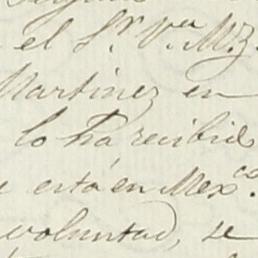 el Sr. Vera Mz.
Martinez en
lo ha recibid
está en Mexco.
voluntad, se